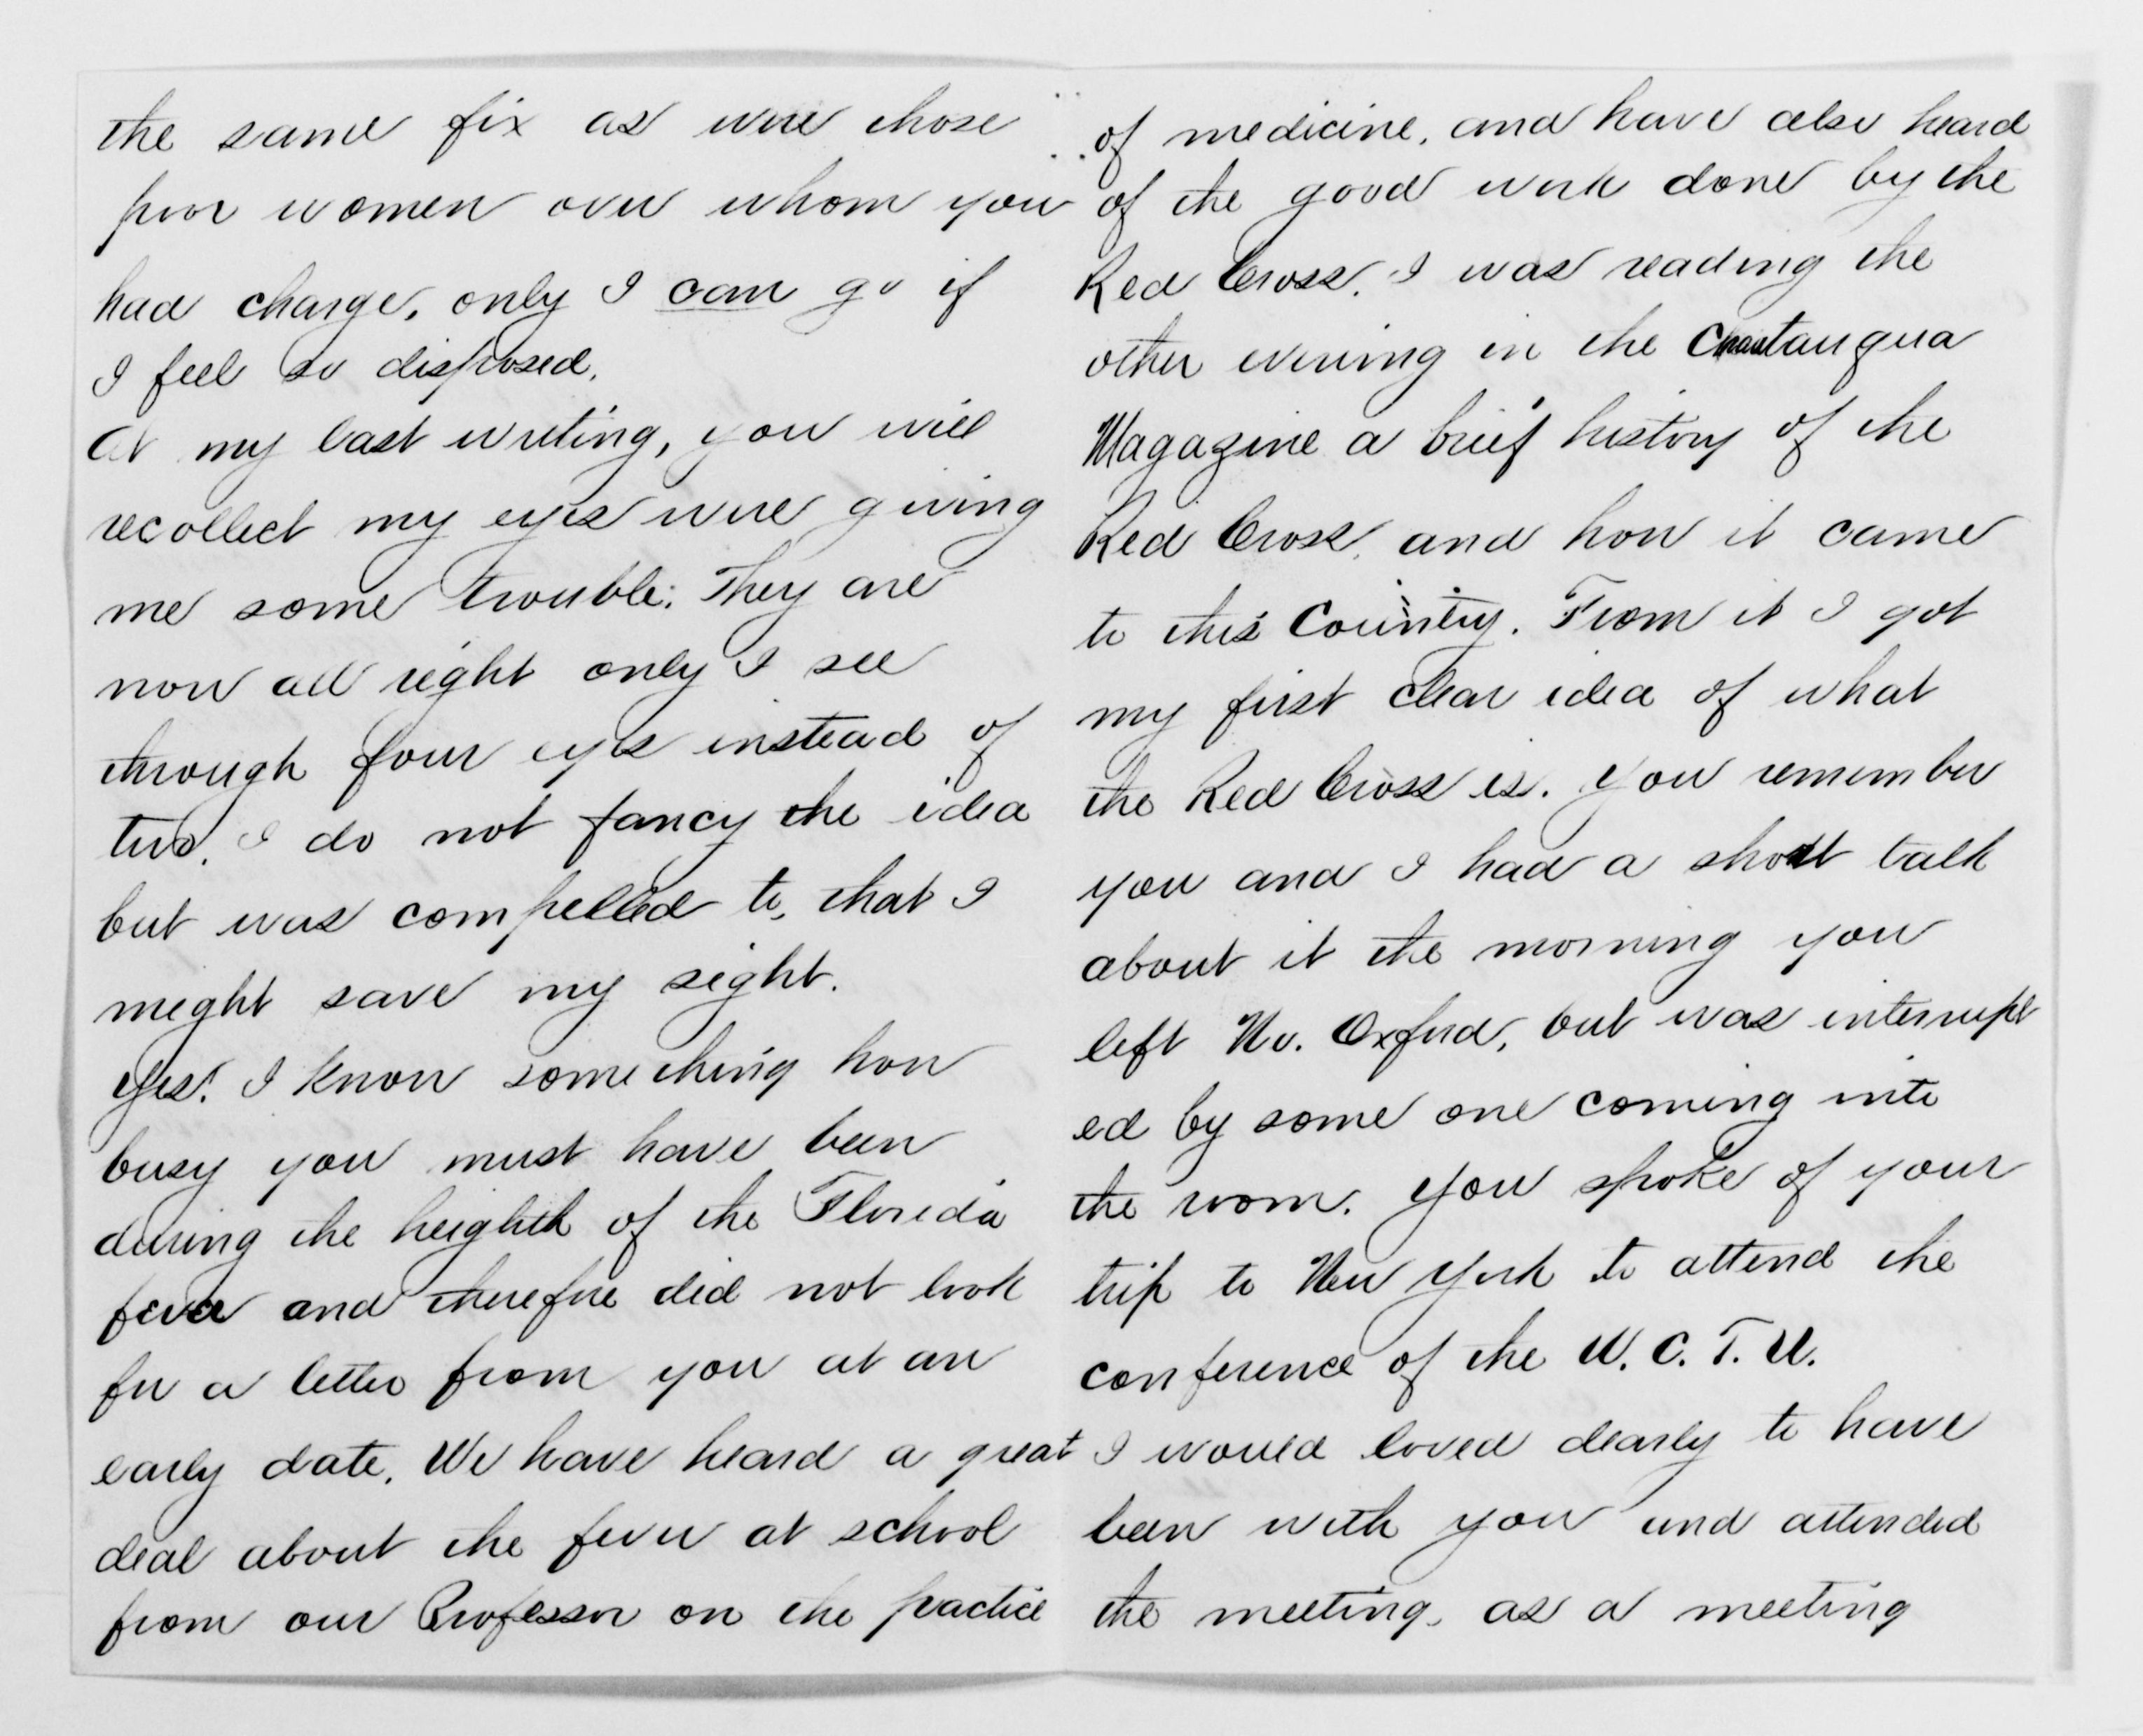 the same fix as were those
poor women over whom you
had charge, only I can go if
I feel so disposed.
At my last writing, you will
recollect my eyes were giving
me some trouble; They are
now all right only I see
through four eyes instead of
two. I do not fancy the idea
but was compelled to, that I
might save my sight.
Yes! I know something how
busy you must have been
during the heighth of the Florida
fever and therefore did not look
for a letter from you at an
early date. We have heard a great
deal about the fever at school
from our Professor on the practice
of medicine, and have also heard
of the good work done by the
Red Cross. I was reading the
other evening in the Chautauqua
Magazine a brief history of the
Red Cross, and how it came
to this Country. From it I got
my first clear idea of what
the Red Cross is. You remember
you and I had a short talk
about it the morning you
left No. Oxford, but was interrupt
ed by some one coming into
the room. You spoke of your
trip to New York to attend the
conference of the W. C. T. U.
I would loved dearly to have
been with you and attended
the meeting, as a meeting